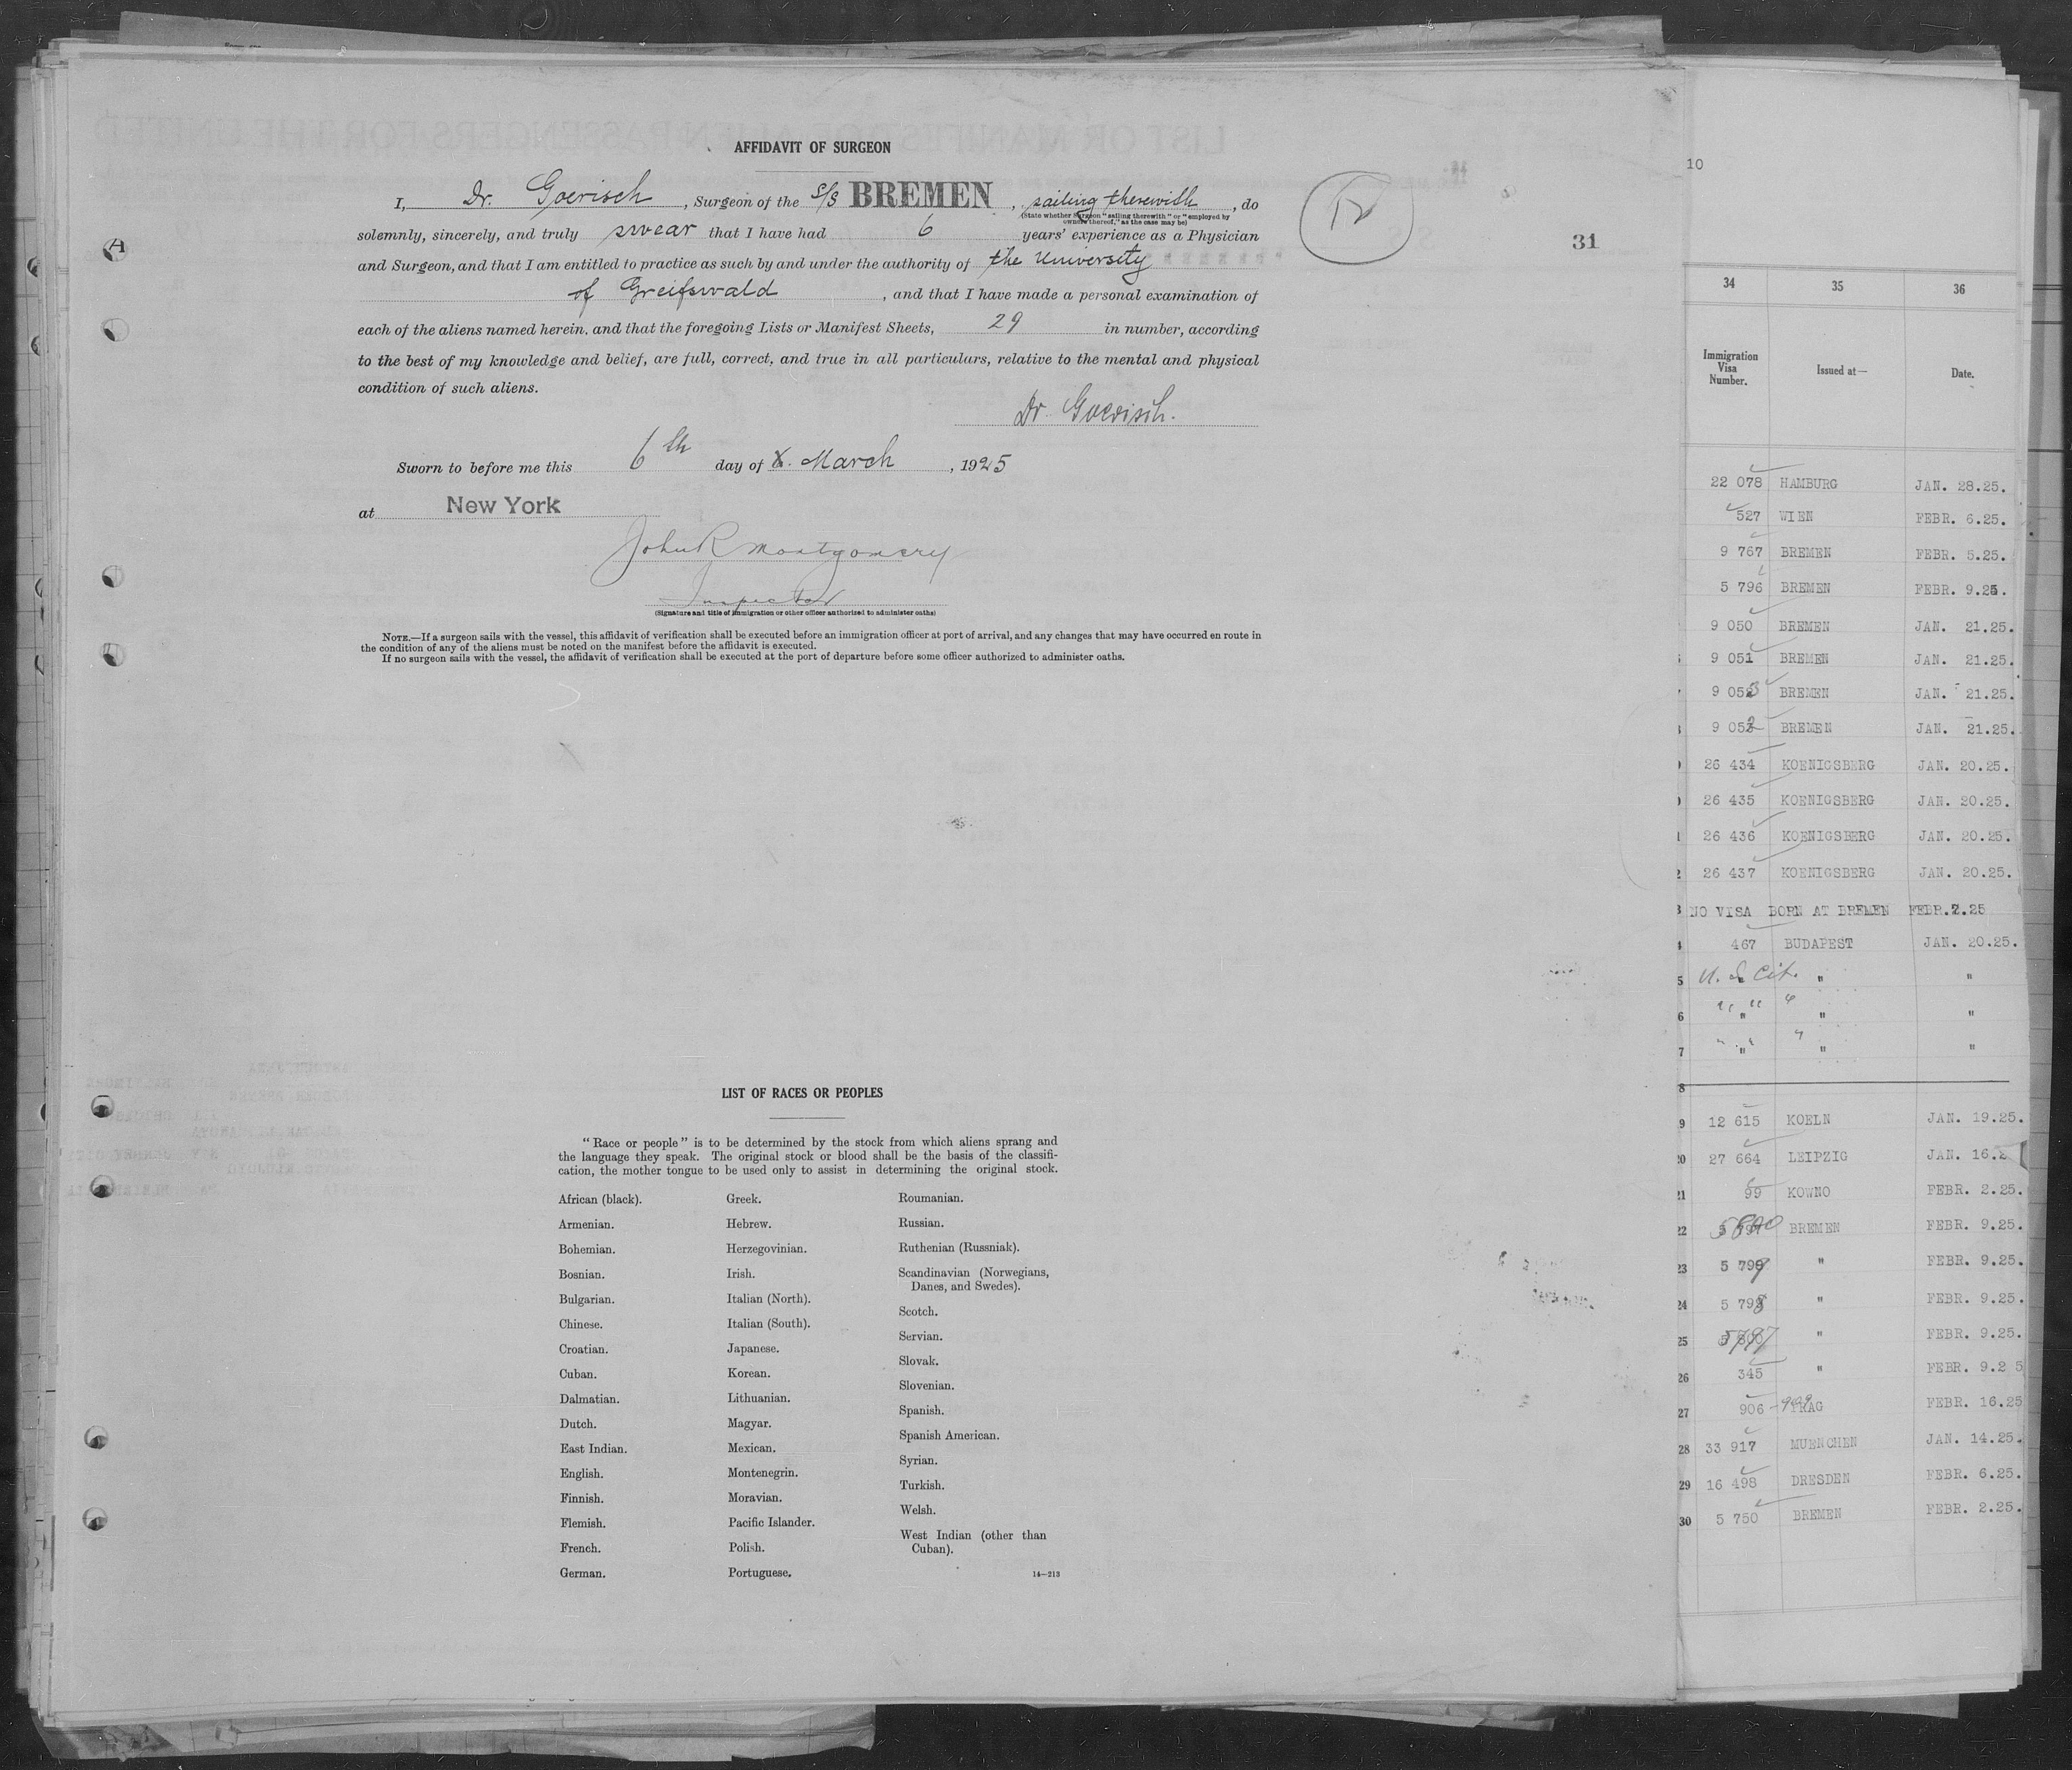 AFFIDAVIT OF SURGEON
I, Dr. Goerisch, Surgeon of the S/S BREMEN, sailing therewith, do
(State whether Surgeon "sailing therewith" or "employed by
owners thereof," as the case may be)
solemnly, sincerely, and truly swear that I have had 6 years' experience as a Physician
and Surgeon, and that I am entitled to practice as such by and under the authority of the University
of Greifswald, and that I have made a personal examination of
each of the aliens named herein, and that the foregoing Lists or Manifest Sheets, 29 in number, according
to the best of my knowledge and belief, are full, correct, and true in all particulars, relative to the mental and physical
condition of such aliens.
Dr. Goerisch.
Sworn to before me this 6th day of March, 1925
at New York
John R Montgomery
Inspector
(Signature and title of immigration or other officer authorized to administer oaths)
NOTE.—If a surgeon sails with the vessel, this affidavit of verification shall be executed before an immigration officer at port of arrival, and any changes that may have occurred en route in
the condition of any of the aliens must be noted on the manifest before the affidavit is executed.
If no surgeon sails with the vessel, the affidavit of verification shall be executed at the port of departure before some officer authorized to administer oaths.
31
LIST OF RACES OR PEOPLES
"Race or people" is to be determined by the stock from which aliens sprang and
the language they speak. The original stock or blood shall be the basis of the classifi-
cation, the mother tongue to be used only to assist in determining the original stock.
African (black).
Armenian.
Bohemian.
Bosnian.
Bulgarian.
Chinese.
Croatian.
Cuban.
Dalmatian.
Dutch.
East Indian.
English.
Finnish.
Flemish.
French.
German.
Greek.
Hebrew.
Herzegovinian.
Irish.
Italian (North).
Italian (South).
Japanese.
Korean.
Lithuanian.
Magyar.
Mexican.
Montenegrin.
Moravian.
Pacific Islander.
Polish.
Portuguese.
Roumanian.
Russian.
Ruthenian (Russniak).
Scandinavian (Norwegians,
Danes, and Swedes).
Scotch.
Servian.
Slovak.
Slovenian.
Spanish.
Spanish American.
Syrian.
Turkish.
Welsh.
West Indian (other than
Cuban).
14—213
10
34 35 36
Immigration
Visa
Number.
Issued at—
Date.
22 078 HAMBURG JAN. 28.25.
527 WIEN FEBR. 6.25.
9 767 BREMEN FEBR. 5.25.
5 796 BREMEN FEBR. 9.25.
9 050 BREMEN JAN. 21.25.
9 051 BREMEN JAN. 21.25.
9 053 BREMEN JAN. 21.25.
9 052 BREMEN JAN. 21.25.
26 434 KOENIGSBERG JAN. 20.25.
26 435 KOENIGSBERG JAN. 20.25.
26 436 KOENIGSBERG JAN. 20.25.
26 437 KOENIGSBERG JAN. 20.25.
NO VISA BORN AT BREMEN FEBR.7.25
467 BUDAPEST JAN. 20.25.
5 U. S. Cit. " "
6 " " " " "
7 " " " " "
8
9 12 615 KOELN JAN. 19.25.
20 27 664 LEIPZIG JAN. 16.2
21 99 KOWNO FEBR. 2.25.
22 5800 BREMEN FEBR. 9.25.
23 5 799 " FEBR. 9.25.
24 5 798 " FEBR. 9.25.
25 5797 " FEBR. 9.25.
26 345 " FEBR. 9.2 5
27 906 PRAG FEBR. 16.25
28 33 917 MUENCHEN JAN. 14.25.
29 16 498 DRESDEN FEBR. 6.25.
30 5 750 BREMEN FEBR. 2.25.